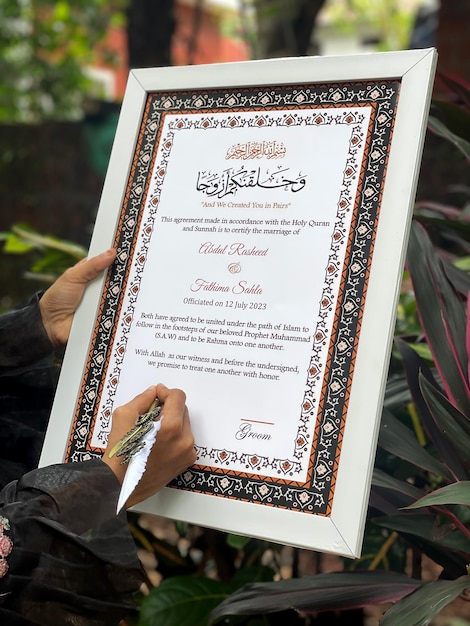 بسم الله الرحمن الرحيم
وخلقنكم أزوجا
"And We Created You in Pairs"
This agreement made in accordance with the Holy Quran
and Sunnah is to certify the marriage of
Abdul Rasheed
&
Fathima Sahla
Officiated on 12 July 2023
Both have agreed to be united under the path of Islam to
follow in the footsteps of our beloved Prophet Muhammad
(S.A.W) and to be Rahma onto one another.
With Allah as our witness and before the undersigned,
we promise to treat one another with honor.
Groom